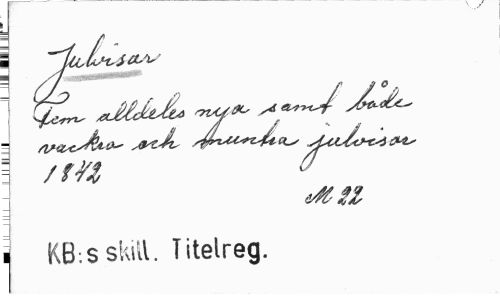 Julvisor
Fem alldeles nya samt både
vackra och muntra julvisor
1842
M 22
KB:s skill. Titelreg.